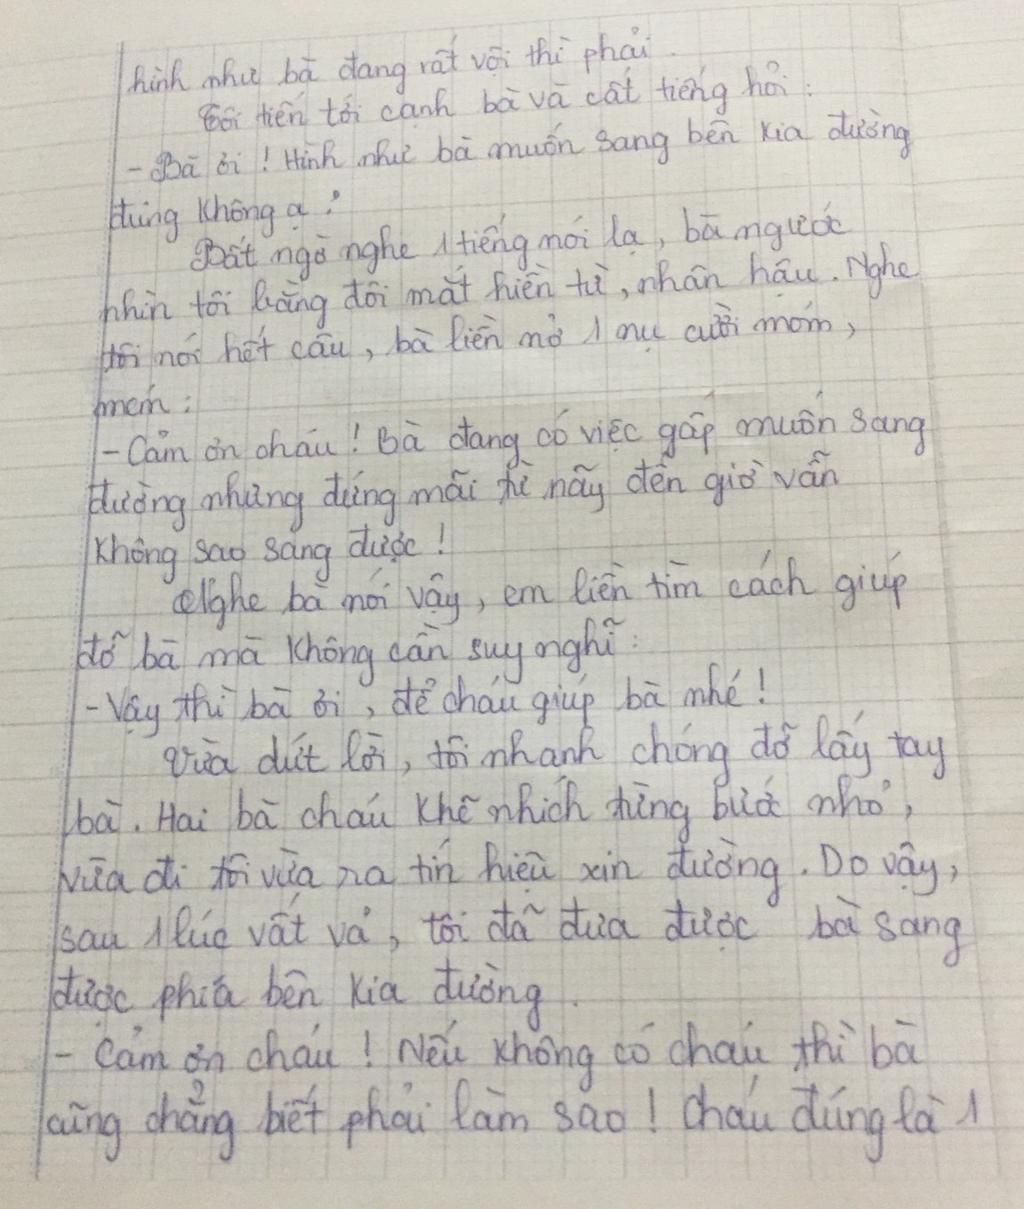 hình như bà đang rất vội thì phải.
Tôi tiến tới cạnh bà và cất tiếng hỏi :
- Bà ơi ! Hình như bà muốn sang bên kia đường
đúng không ạ ?
Bất ngờ nghe 1 tiếng nói lạ, bà ngước
nhìn tôi bằng đôi mắt hiền từ, nhân hậu. Nghe
tôi nói hết câu, bà liền nở 1 nụ cười móm,
mém :
- Cảm ơn cháu ! Bà đang có việc gấp muốn sang
đường nhưng đứng mãi từ nãy đến giờ vẫn
không sao sang được !
Nghe bà nói vậy, em liền tìm cách giúp
đỡ bà mà không cần suy nghĩ :
- Vậy thì bà ơi, để cháu giúp bà nhé !
Vừa dứt lời, tôi nhanh chóng đỡ lấy tay
bà. Hai bà cháu khẽ nhích từng bước nhỏ,
vừa đi tôi vừa ra tín hiệu xin đường. Do vậy,
sau 1 lúc vất vả, tôi đã đưa được bà sang
được phía bên kia đường.
- Cảm ơn cháu ! Nếu không có cháu thì bà
cũng chẳng biết phải làm sao ! Cháu đúng là 1